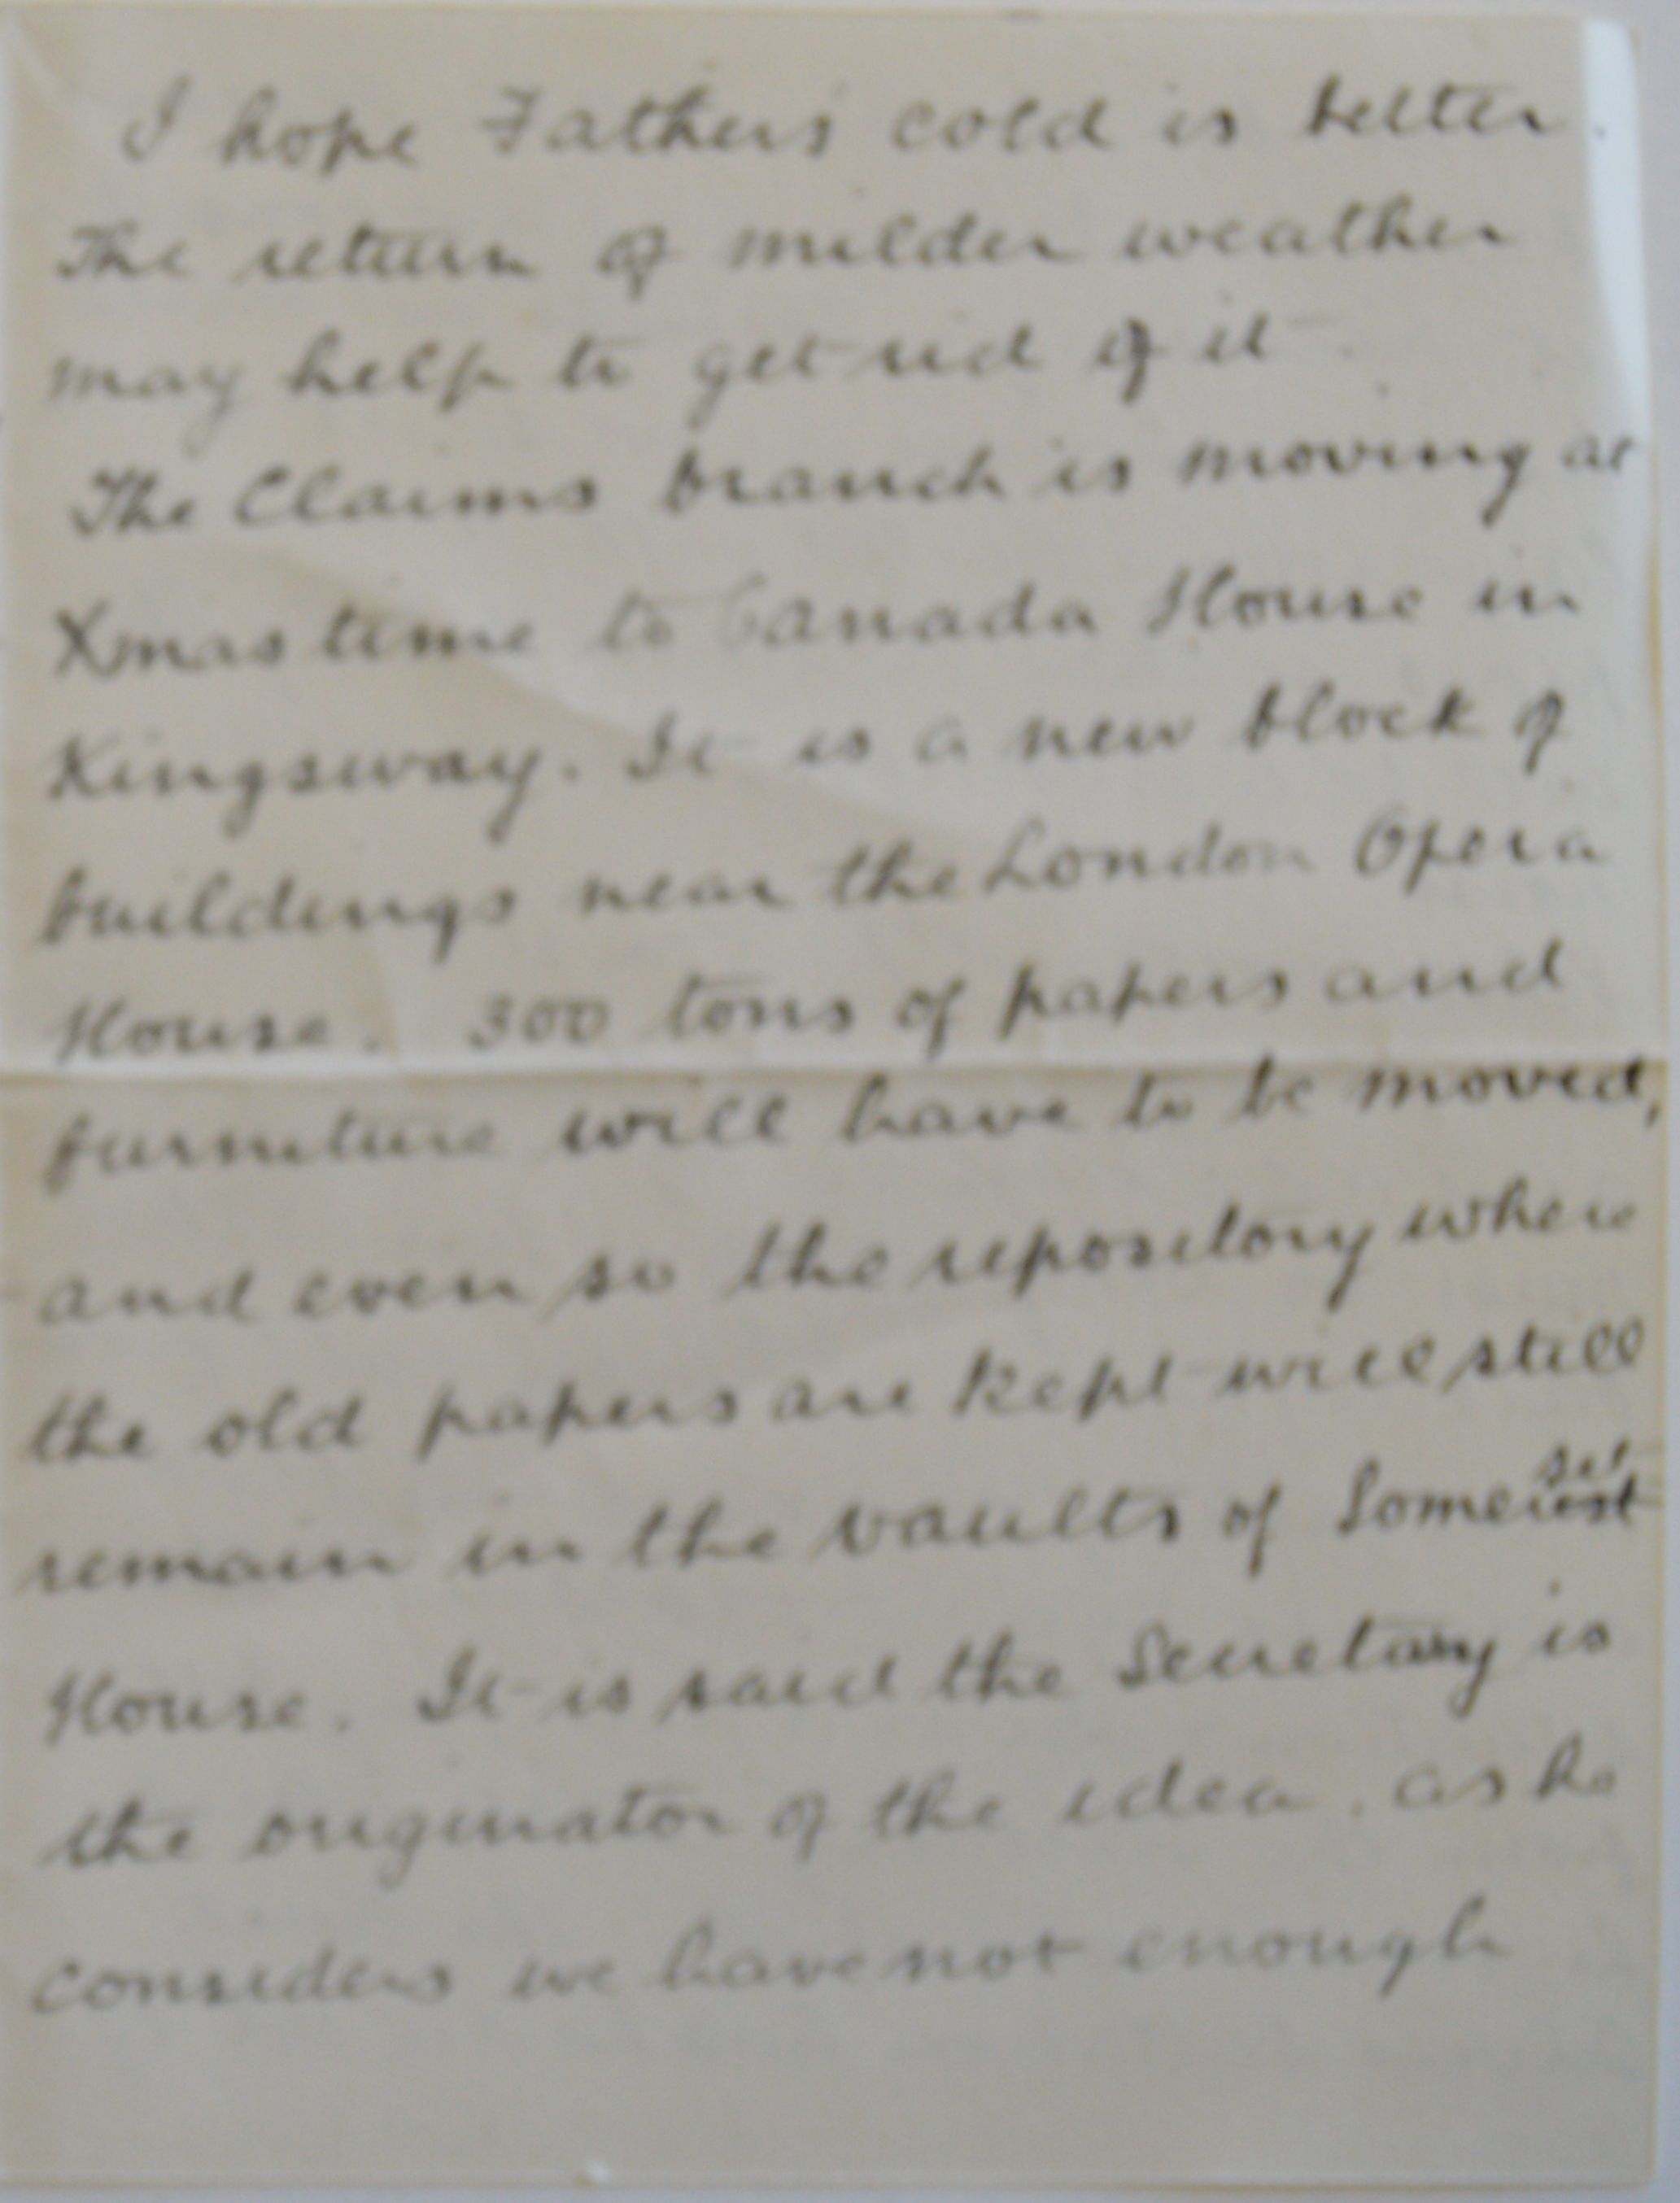 I hope Fathers' cold is better.
The return of milder weather
may help to get rid of it.
The Claims branch is moving at
Xmas time to Canada House in
Kingsway. It is a new block of
buildings near the London Opera
House. 300 tons of papers and
furniture will have to be moved,
and even so the repository where
the old papers are kept will still
set
remain in the vaults of Somerset
House. It is said the Secretary is
the originator of the idea, as he
considers we have not enough